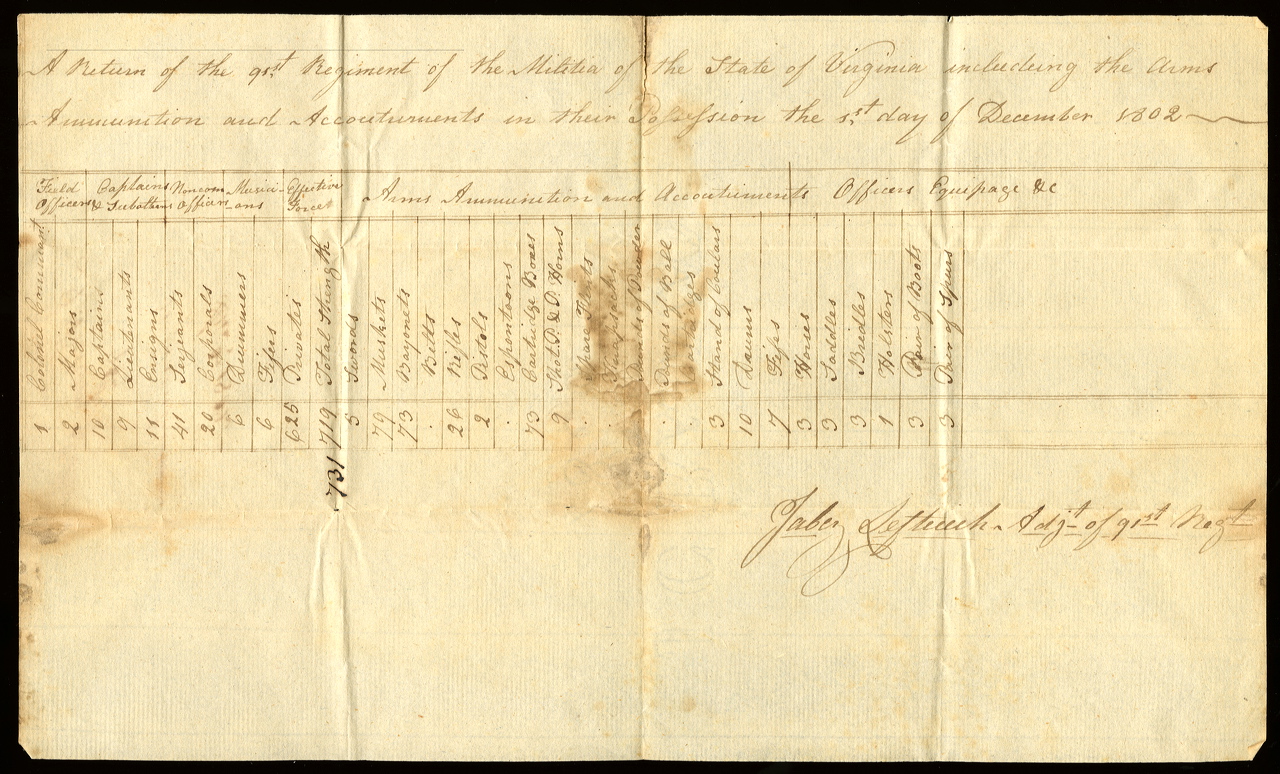 A Return of the 91st Regiment of the Militia of the State of Virginia including the Arms
Ammunition and Accouturments in their Possession the 1st day of December 1802
Field Officers
Captains & Subalterns
Noncom Officers
Musici-ans
Effective Force
Arms Ammunition and Accoutuments
Officers Equipage &c
Colonel Commandt 1
Majors 2
Captains 10
Lieutenants 9
Ensigns 11
Serjeants 41
Corporals 20
Drummers 6
Fifers 6
Privates 625
Total Strength 719
Swords 5
Muskets 79
Bayonets 73
Belts .
Rifles 26
Pistols 2
Espontoons .
Cartridge Boxes 73
Shot P. & P. Horns 9
Spare Flints .
Knapsacks .
Pounds of Powder .
Pounds of Ball .
Cartridges .
Stand of Coulars 3
Drums 10
Fifes 7
Horses 3
Saddles 3
Bridles 3
Holsters 1
Pair of Boots 3
Pair of Spurs 3
731
Jabez Leftwich Adjt of 91st Regt